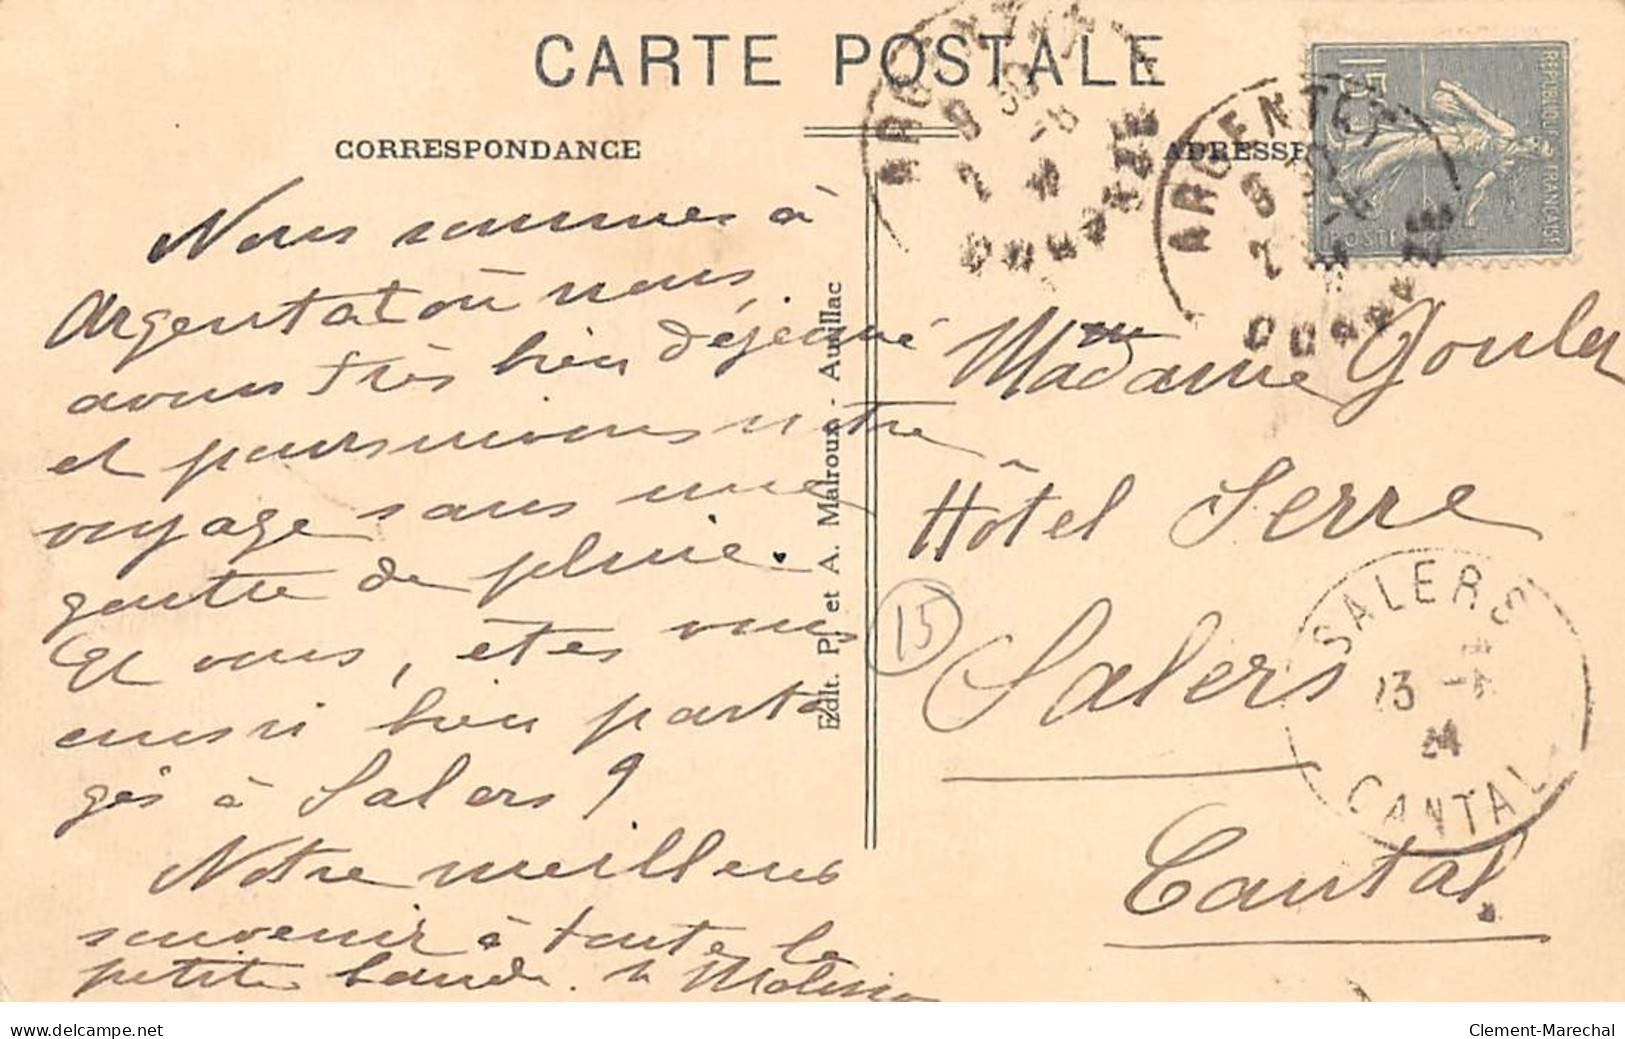 CARTE POSTALE
CORRESPONDANCE
ADRESSE
Nous sommes à
Argentat où nous
avons très bien déjeuné
et poursuivons notre
voyage sans une
goutte de pluie.
Et vous, êtes vous
aussi bien parta
gés à Salers ?
Notre meilleur
souvenir à toute la
petite bande.
Edit. P. et A. Malroux - Aurillac
Madame
Hôtel Serre
Salers
Cantal
15
REPUBLIQUE FRANÇAISE
15c
POSTES
ARGENTAT
CORREZE
ARGENTAT
CORREZE
SALERS
13
24
CANTAL
www.delcampe.net
Clement-Marechal